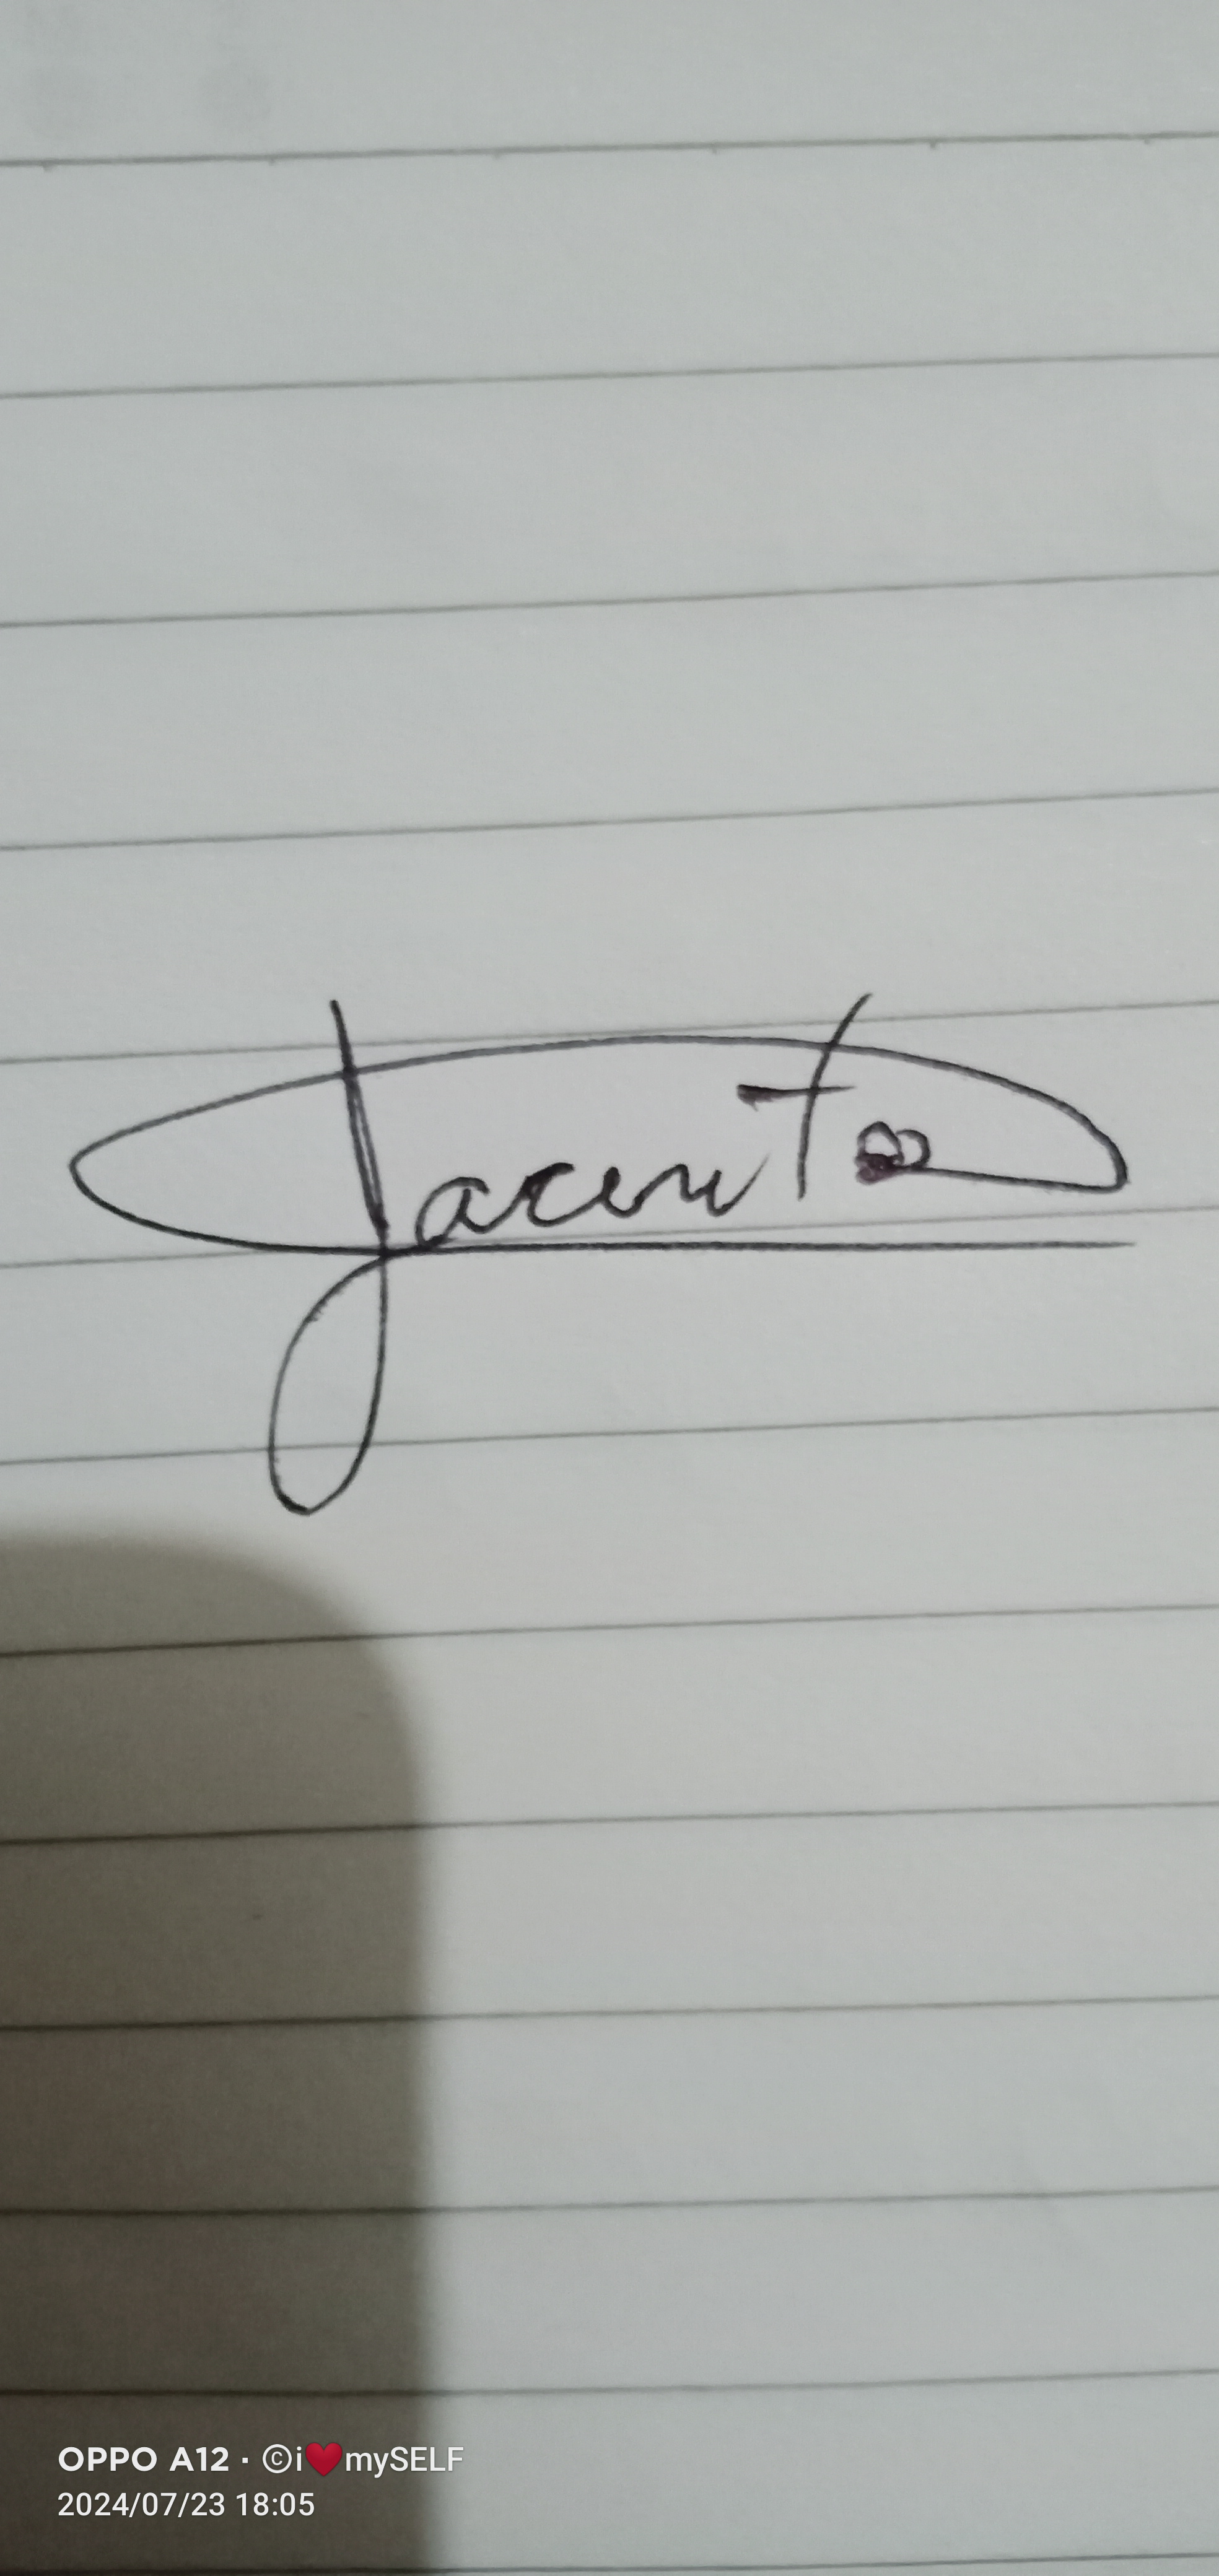 Jacenta
OPPO A12 · ©i❤️mySELF
2024/07/23 18:05